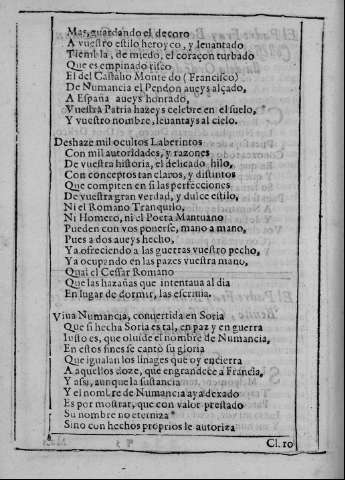 Mas, guardando el decoro
A vuestro estilo heroyco, y leuantado
Tiembla, de miedo, el coraçon turbado
Que es empinado risco
El del Castalio Monte do (Francisco)
De Numancia el Pendon aueys alçado,
A España aueys honrado,
Vuestra Patria hazeys celebre en el suelo,
Y vuestro nombre, leuantays al cielo.
Deshaze mil ocultos Laberintos
Con mil autoridades, y razones
De vuestra historia, el delicado hilo,
Con conceptos tan claros, y distintos
Que compiten en si las perfecciones
De vuestra gran verdad, y dulce estilo,
Ni el Romano Tranquilo,
Ni Homero, ni el Poeta Mantuano
Pueden con vos ponerse, mano a mano,
Pues a dos aueys hecho,
Ya ofreciendo a las guerras vuestro pecho,
Ya ocupando en las pazes vuestra mano,
Qual el Cessar Romano
Que las hazañas que intentaua al dia
En lugar de dormir, las escriuia.
Viua Numancia, conuertida en Soria
Que si hecha Soria es tal, en paz y en guerra
Iusto es, que oluide el nombre de Numancia,
En estos fines se cantò su gloria
Que igualan los linages que oy encierra
A aquellos doze, que engrandece a Francia,
Y assi, aunque la sustancia
Y el nombre de Numancia aya dexado
Es por mostrar, que con valor prestado
Su nombre no eterniza
Sino con hechos proprios le autoriza
Cl. ro